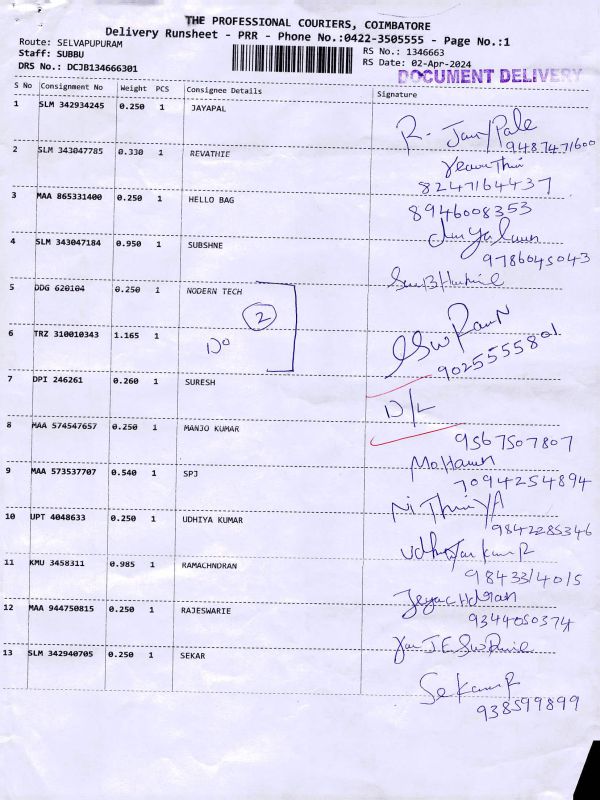 THE PROFESSIONAL COURIERS, COIMBATORE
Delivery Runsheet - PRR - Phone No.:0422-3505555 - Page No.:1
Route: SELVAPUPURAM
Staff: SUBBU
DRS No.: DCJB134666301
RS No.: 1346663
RS Date: 02-Apr-2024
DOCUMENT DELIVERY
S No Consignment No Weight PCS Consignee Details Signature
1 SLM 342934245 0.250 1 JAYAPAL
9487471600
2 SLM 343047785 0.330 1 REVATHIE
8247164437
3 MAA 865331400 0.250 1 HELLO BAG
8946008353
4 SLM 343047184 0.950 1 SUBSHNE
9786045043
5 DDG 620104 0.250 1 NODERN TECH
2
6 TRZ 310010343 1.165 1 Do
9025555801
7 DPI 246261 0.260 1 SURESH
D/L
8 MAA 574547657 0.250 1 MANJO KUMAR
9567507807
9 MAA 573537707 0.540 1 SPJ
7094254894
10 UPT 4048633 0.250 1 UDHIYA KUMAR
9842285346
11 KMU 3458311 0.985 1 RAMACHNDRAN
12 MAA 944750815 0.250 1 RAJESWARIE
9344050374
13 SLM 342940705 0.250 1 SEKAR
938599899